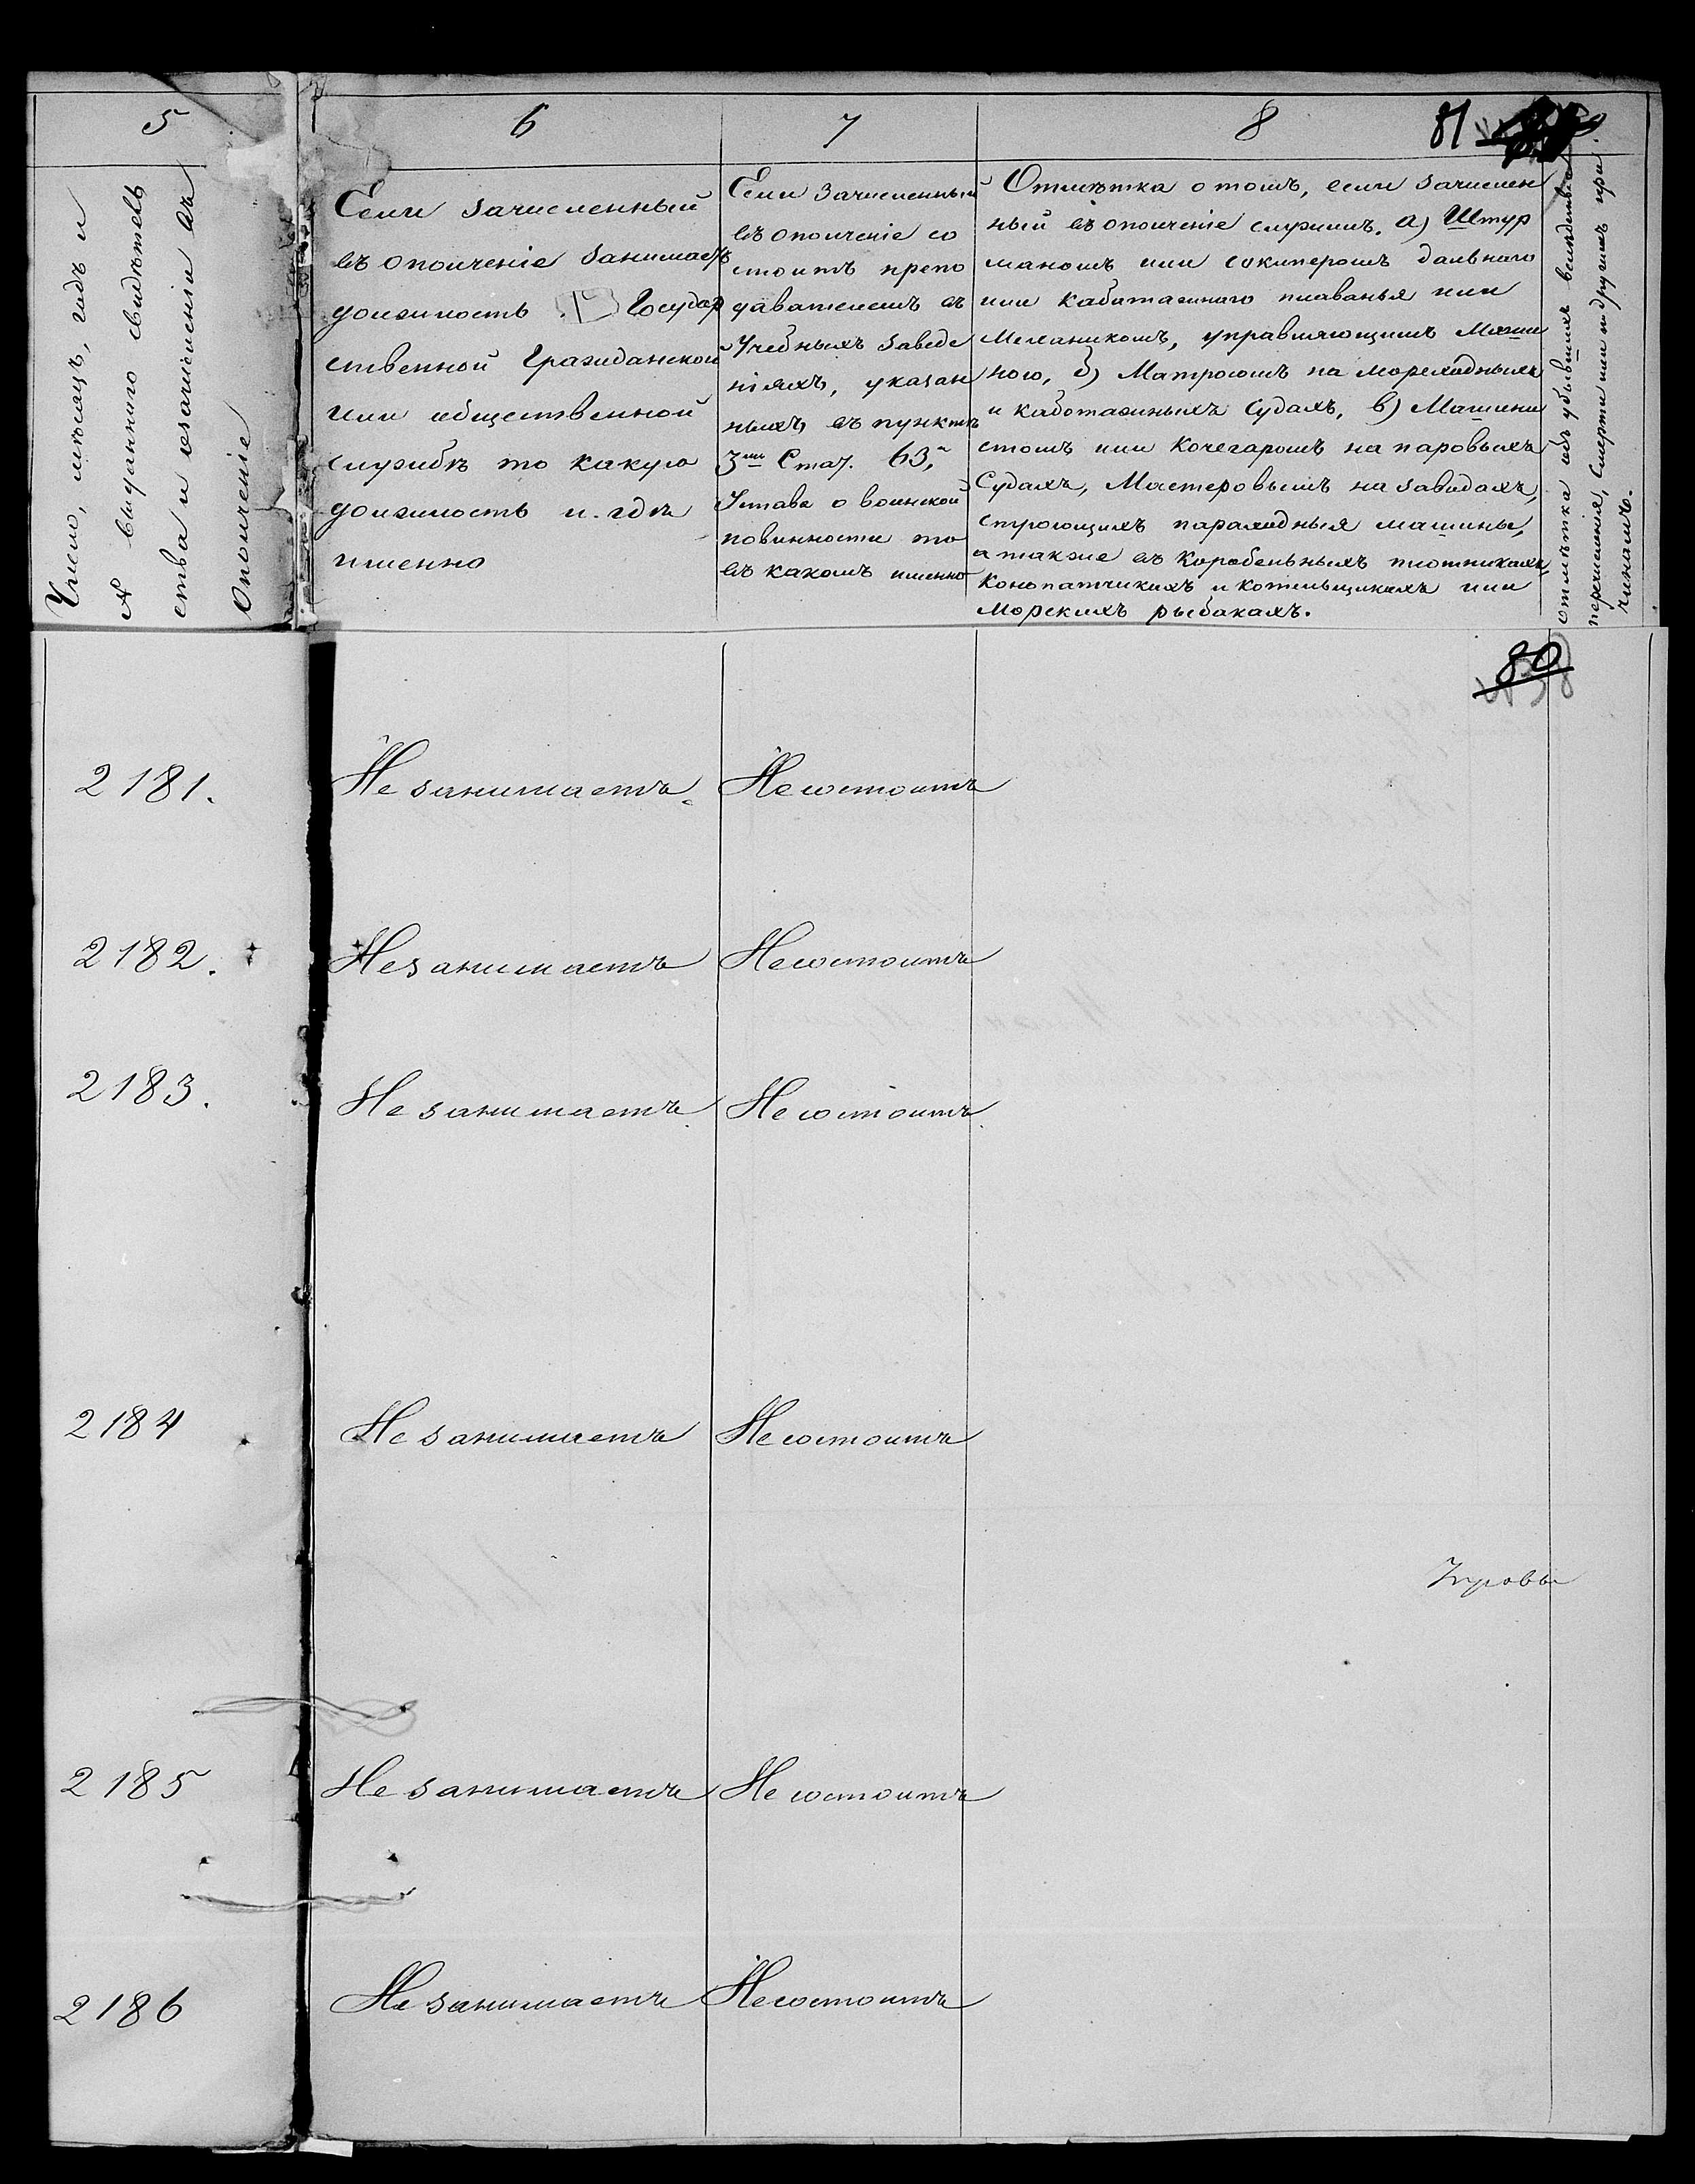 5
6
7
8
81
Число, мѣсяцъ, годъ и
№ выданнаго свидѣтель
ства и зачисленіи въ
Ополченіе
Если зачисленный
въ ополченіе занимаетъ
должность Государ
ственной Гражданской
или общественной
службѣ то какую
должность и. гдѣ
именно
Если зачисленный
въ ополченіе со
стоитъ препо
давателемъ въ
Учебныхъ Заведе
ніяхъ, указан
ныхъ въ пунктѣ
3мъ Стат. 63,
Устава о воинской
повинности то
въ какомъ именно
Отмѣтка о томъ, если зачислен
ный въ ополченіе служитъ. а) Штур
маномъ или сокиперомъ дальняго
или каботажнаго плаванья или
Механикомъ, управляющимъ Маши
ною, б) Матросомъ на мореходныхъ
и каботажныхъ Судахъ, в) Машини
стомъ или Кочегаромъ на паровыхъ
Судахъ, Мастеровымъ на заводахъ,
строющихъ пароходныя машины,
а также въ Корабельныхъ плотникахъ,
Конопатчикахъ и котельщикахъ или
Морскихъ рыбакахъ.
Отмѣтка объ убывшихъ вслѣдствіе
перечисленія, Смерти или по другимъ при
чинамъ.
80
2181. Не занимаетъ. Не состоитъ
2182. Не занимаетъ Не состоитъ
2183. Не занимаетъ. Не состоитъ.
2184 Не занимаетъ Не состоитъ
2185 Не занимаетъ Не состоитъ
2186 Не занимаетъ Не состоитъ